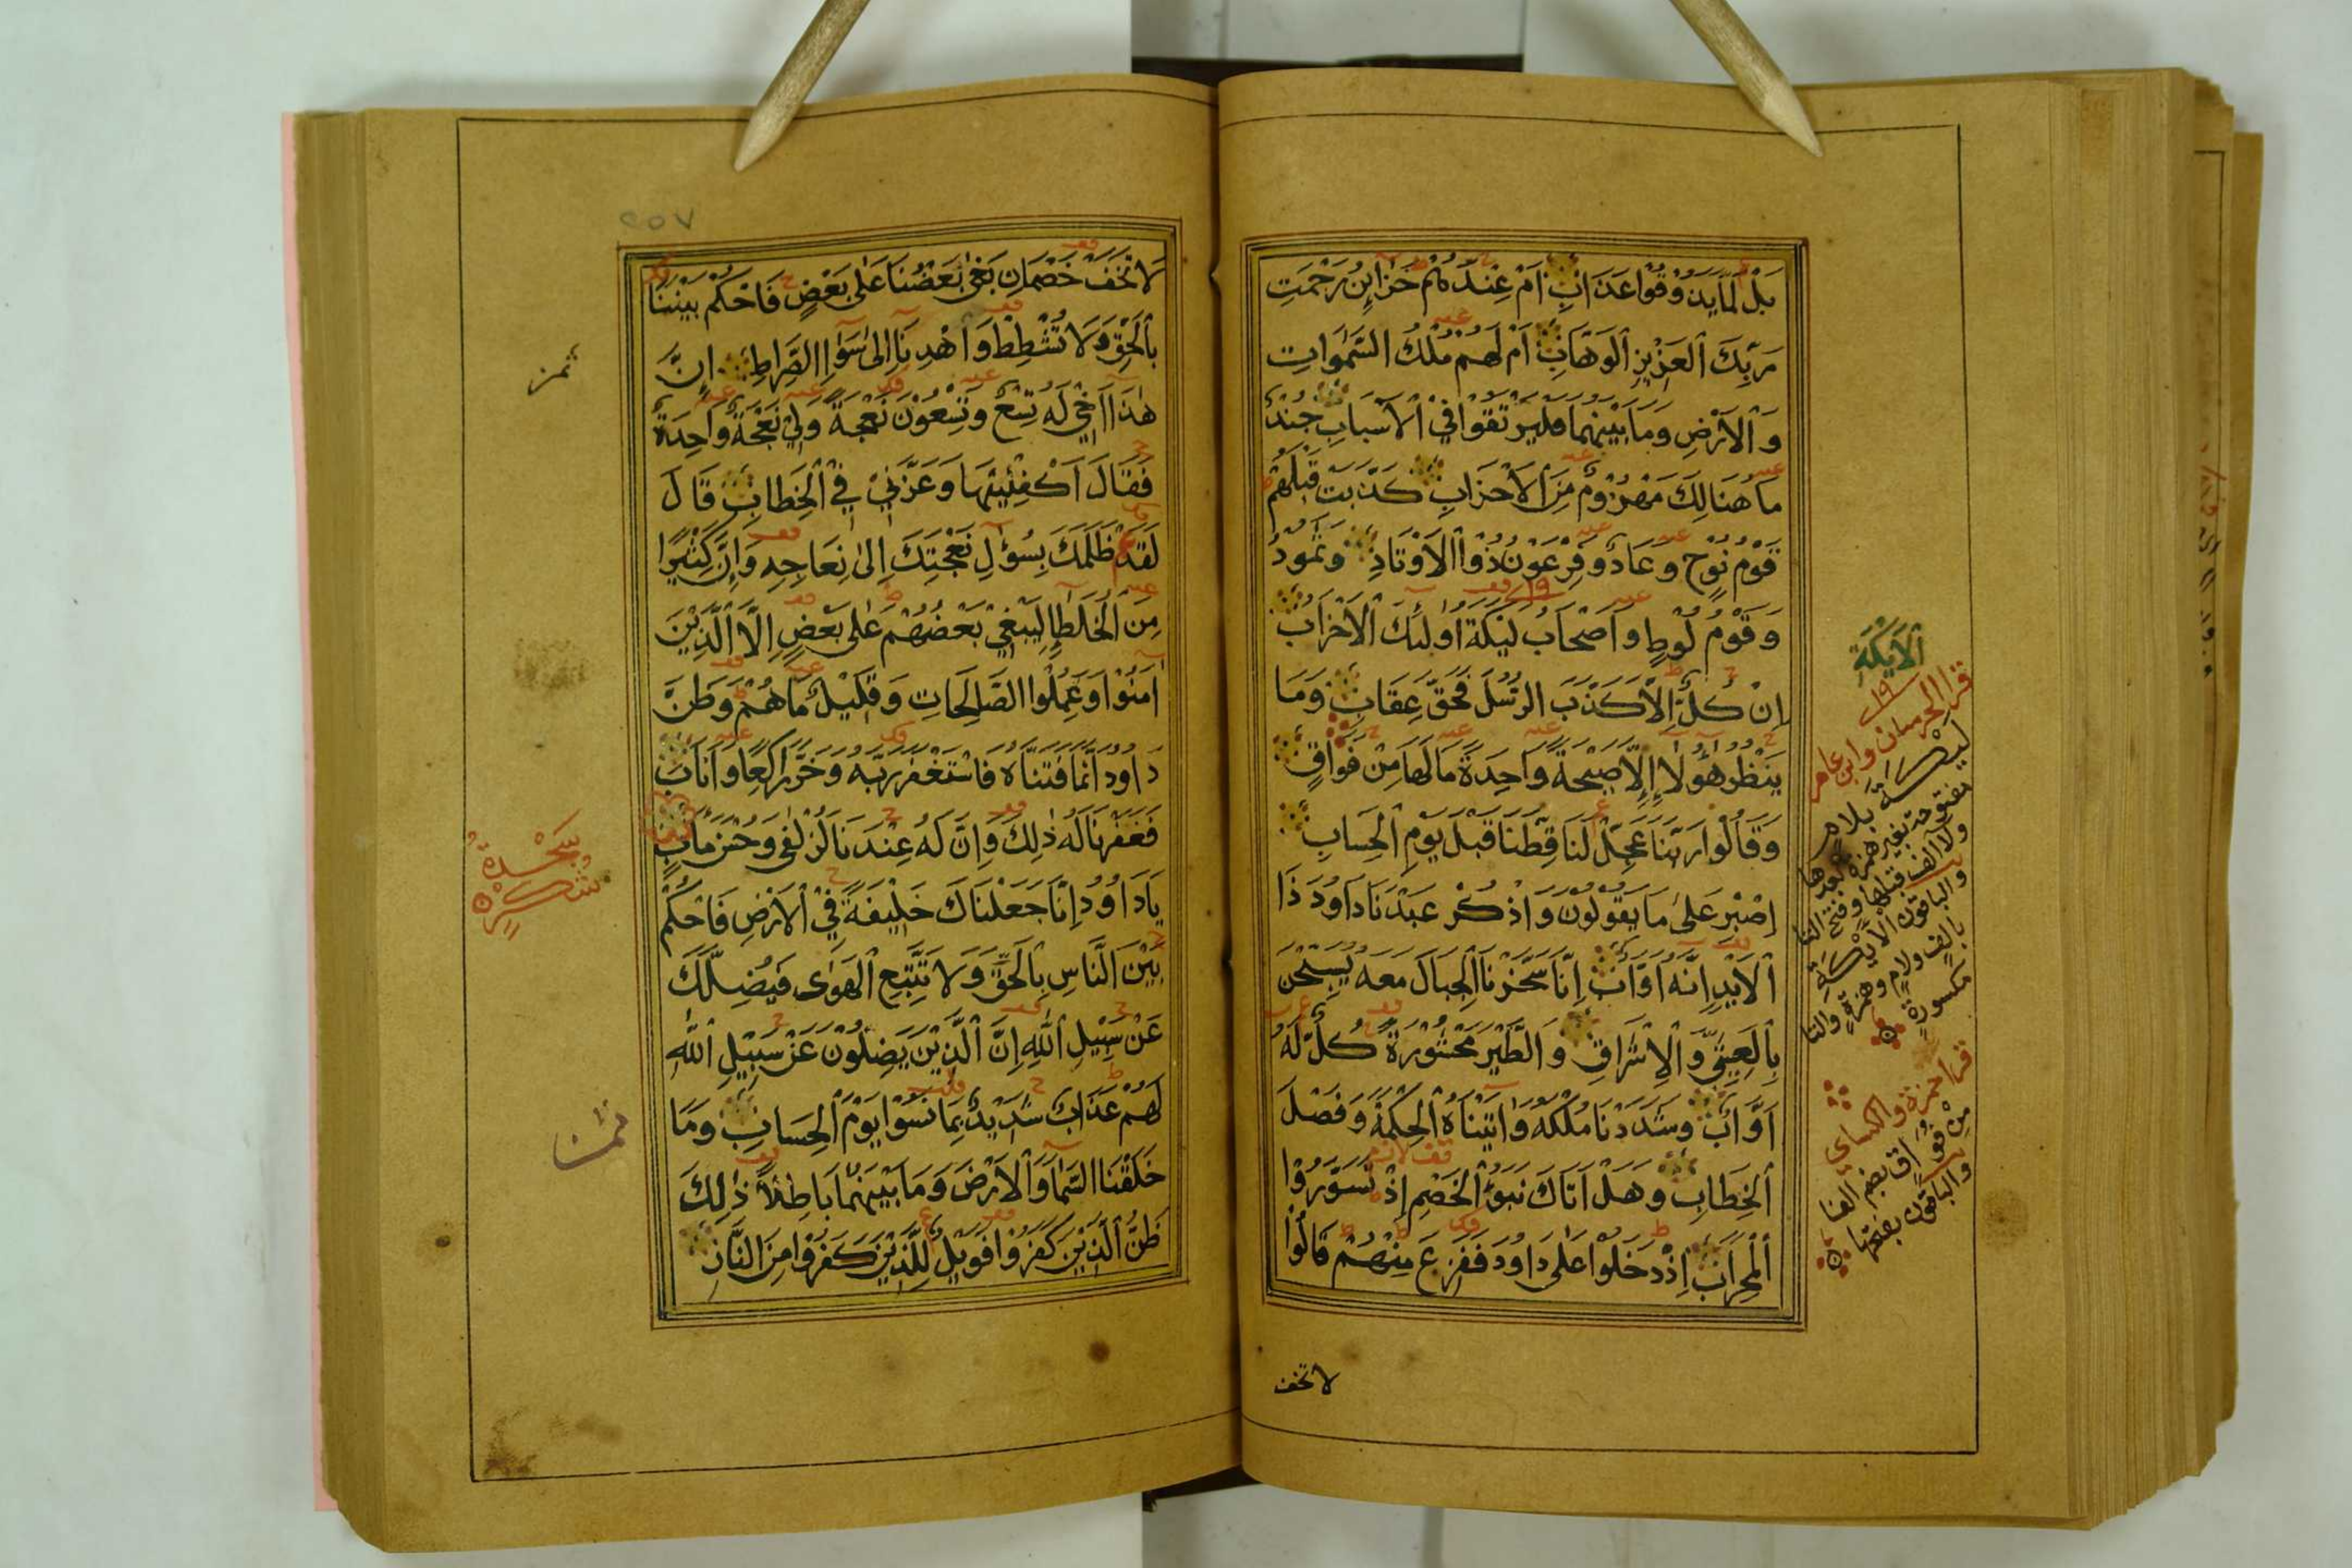 بَلْ لَمَّا يَذُوقُوا عَذَابِ اَمْ عِنْدَهُمْ خَزَائِنُ رَحْمَتِ
رَبِّكَ الْعَزِيْزِ الْوَهَّابِ اَمْ لَهُمْ مُلْكُ السَّمٰوَاتِ
وَالْاَرْضِ وَمَا بَيْنَهُمَا فَلْيَرْتَقُوْا فِي الْاَسْبَابِ جُنْدٌ
مَا هُنَالِكَ مَهْزُوْمٌ مِنَ الْاَحْزَابِ كَذَّبَتْ قَبْلَهُمْ
قَوْمُ نُوْحٍ وَعَادٌ وَفِرْعَوْنُ ذُو الْاَوْتَادِ وَثَمُوْدُ
وَقَوْمُ لُوْطٍ وَاَصْحَابُ لَيْكَةَ اُولٰئِكَ الْاَحْزَابُ
اِنْ كُلٌّ اِلَّا كَذَّبَ الرُّسُلَ فَحَقَّ عِقَابِ وَمَا
يَنْظُرُ هٰؤُلَاءِ اِلَّا صَيْحَةً وَاحِدَةً مَا لَهَا مِنْ فَوَاقٍ
وَقَالُوْا رَبَّنَا عَجِّلْ لَنَا قِطَّنَا قَبْلَ يَوْمِ الْحِسَابِ
اِصْبِرْ عَلٰى مَا يَقُوْلُوْنَ وَاذْكُرْ عَبْدَنَا دَاوُدَ ذَا
الْاَيْدِ اِنَّهُ اَوَّابٌ اِنَّا سَخَّرْنَا الْجِبَالَ مَعَهُ يُسَبِّحْنَ
بِالْعَشِيِّ وَالْاِشْرَاقِ وَالطَّيْرَ مَحْشُوْرَةً كُلٌّ لَهُ
اَوَّابٌ وَشَدَدْنَا مُلْكَهُ وَاٰتَيْنَاهُ الْحِكْمَةَ وَفَصْلَ
الْخِطَابِ وَهَلْ اَتَاكَ نَبَؤُا الْخَصْمِ اِذْ تَسَوَّرُوا
الْمِحْرَابَ اِذْ دَخَلُوْا عَلٰى دَاوُدَ فَفَزِعَ مِنْهُمْ قَالُوْا
لا تخف
اَلْاَيْكَةِ
قرا الحرميان وابن عامر
ليكة بلام
مفتوحة بغير همزة بعدها
ولا الف قبلها وفتح التا
والباقون الايكة
بالف ولام وهمزة والتا
مكسورة
قرا حمزة والكساى
من فواق بضم الفا
والباقون بفتحها
٢٥٧
لَا تَخَفْ خَصْمَانِ بَغٰى بَعْضُنَا عَلٰى بَعْضٍ فَاحْكُمْ بَيْنَنَا
بِالْحَقِّ وَلَا تُشْطِطْ وَاهْدِنَا اِلٰى سَوَاءِ الصِّرَاطِ اِنَّ
هٰذَا اَخِيْ لَهُ تِسْعٌ وَتِسْعُوْنَ نَعْجَةً وَلِيَ نَعْجَةٌ وَاحِدَةٌ
فَقَالَ اَكْفِلْنِيْهَا وَعَزَّنِيْ فِي الْخِطَابِ قَالَ
لَقَدْ ظَلَمَكَ بِسُؤَالِ نَعْجَتِكَ اِلٰى نِعَاجِهِ وَاِنَّ كَثِيْرًا
مِنَ الْخُلَطَاءِ لَيَبْغِيْ بَعْضُهُمْ عَلٰى بَعْضٍ اِلَّا الَّذِيْنَ
اٰمَنُوْا وَعَمِلُوا الصَّالِحَاتِ وَقَلِيْلٌ مَا هُمْ وَظَنَّ
دَاوُدُ اَنَّمَا فَتَنَّاهُ فَاسْتَغْفَرَ رَبَّهُ وَخَرَّ رَاكِعًا وَاَنَابَ
فَغَفَرْنَا لَهُ ذٰلِكَ وَاِنَّ لَهُ عِنْدَنَا لَزُلْفٰى وَحُسْنَ مَاٰبٍ
يَا دَاوُدُ اِنَّا جَعَلْنَاكَ خَلِيْفَةً فِي الْاَرْضِ فَاحْكُمْ
بَيْنَ النَّاسِ بِالْحَقِّ وَلَا تَتَّبِعِ الْهَوٰى فَيُضِلَّكَ
عَنْ سَبِيْلِ اللّٰهِ اِنَّ الَّذِيْنَ يَضِلُّوْنَ عَنْ سَبِيْلِ اللّٰهِ
لَهُمْ عَذَابٌ شَدِيْدٌ بِمَا نَسُوْا يَوْمَ الْحِسَابِ وَمَا
خَلَقْنَا السَّمَاءَ وَالْاَرْضَ وَمَا بَيْنَهُمَا بَاطِلًا ذٰلِكَ
ظَنُّ الَّذِيْنَ كَفَرُوْا فَوَيْلٌ لِلَّذِيْنَ كَفَرُوْا مِنَ النَّارِ
ثمن
سَجْدَةُ
شُكْرٍ
ثمن